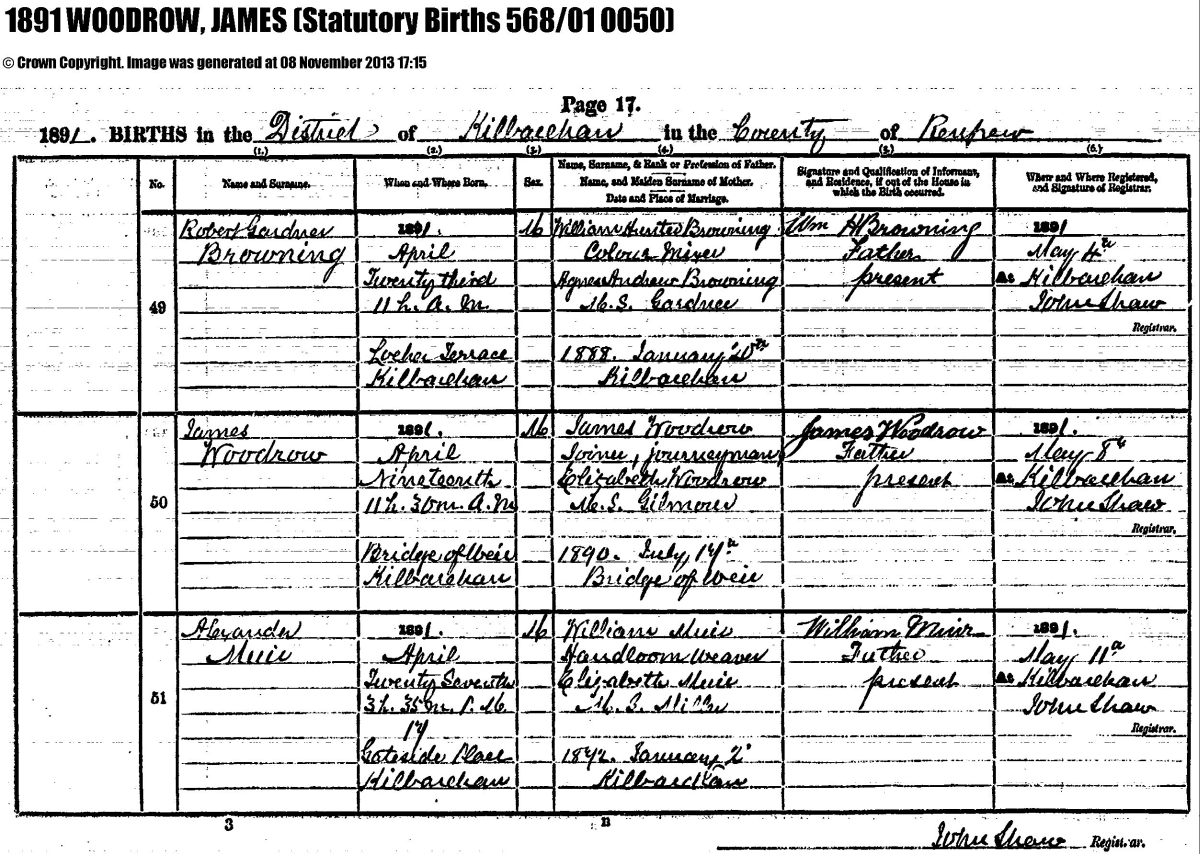 1891 WOODROW, JAMES (Statutory Births 568/01 0050)
© Crown Copyright. Image was generated at 08 November 2013 17:15
Page 17.
1891. BIRTHS in the District of Kilbarchan in the County of Renfrew
(1.) (2.) (3.) (4.) (5.) (6.)
No.
Name and Surname.
When and Where Born.
Sex.
Name, Surname, & Rank or Profession of Father.
Name, and Maiden Surname of Mother.
Date and Place of Marriage.
Signature and Qualification of Informant,
and Residence, if out of the House in
which the Birth occurred.
When and Where Registered,
and Signature of Registrar.
49
Robert Gardner
Browning
1891.
April
Twenty third
11 h. A. M.
Locher Terrace
Kilbarchan
M
William Hunter Browning
Colour Mixer
Agnes Andrew Browning
M.S. Gardner
1888. January 20th
Kilbarchan
Wm H Browning
Father
present
1891
May 4th
At Kilbarchan
John Shaw
Registrar.
50
James
Woodrow
1891.
April
Nineteenth
11 h. 30 m. A. M.
Bridge of Weir
Kilbarchan
M
James Woodrow
Joiner, journeyman
Elizabeth Woodrow
M.S. Gilmour
1890. July, 17th
Bridge of Weir
James Woodrow
Father
present
1891.
May 8th
At Kilbarchan
John Shaw
Registrar.
51
Alexander
Muir
1891.
April
Twenty Seventh
3 h. 35 m. P. M.
17
Gateside Place
Kilbarchan
M
William Muir
Handloom Weaver
Elizabeth Muir
M.S. Miller
1872. January, 2
Kilbarchan
William Muir
Father
present
1891.
May 11th
At Kilbarchan
John Shaw
Registrar.
3
B
John Shaw Registrar.